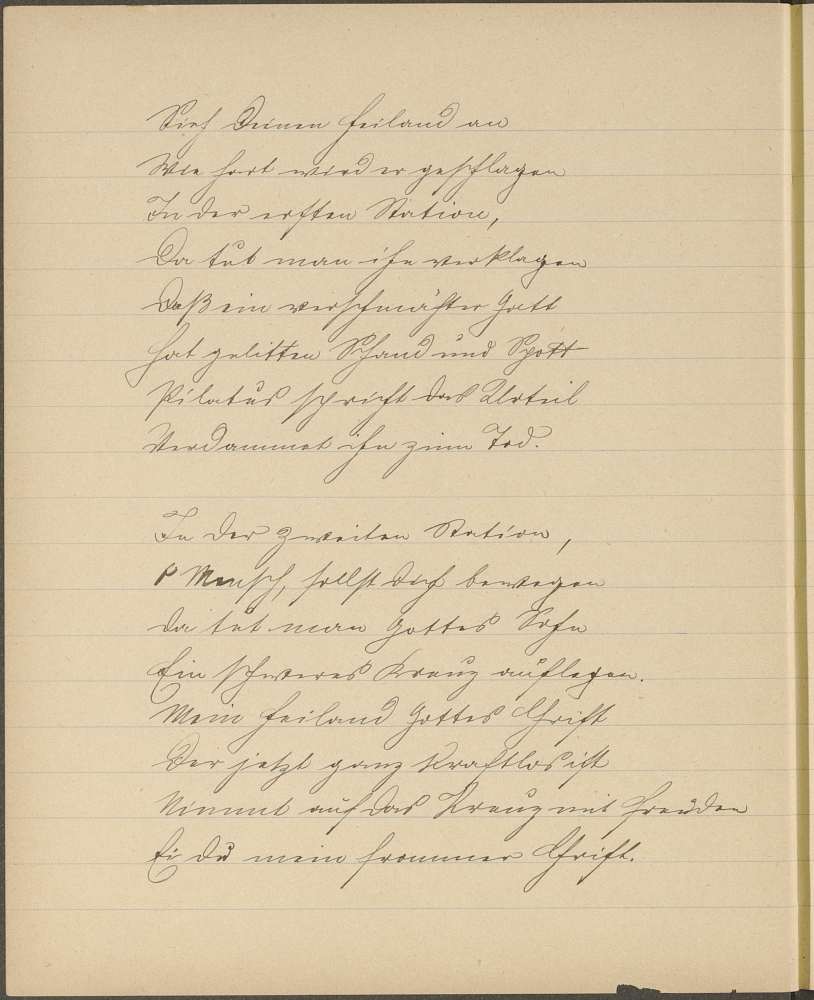 Sieh Deinen Heiland an
Wie hart wird er geschlagen
In der ersten Station,
Da tut man ihn verklagen
Daß ein verschmähter Gott
hat gelitten Schand und Spott
Pilatus spricht das Urteil
Verdammet ihn zum Tod.
In der zweiten Station,
O Mensch, sollst dich bewegen
da tut man Gottes Sohn
Ein schweres Kreuz auflegen.
Mein Heiland Gottes Christ
Der jetzt ganz kraftlos ist
Nimmt auf das Kreuz mit Freuden
Ei du mein frommer Christ.